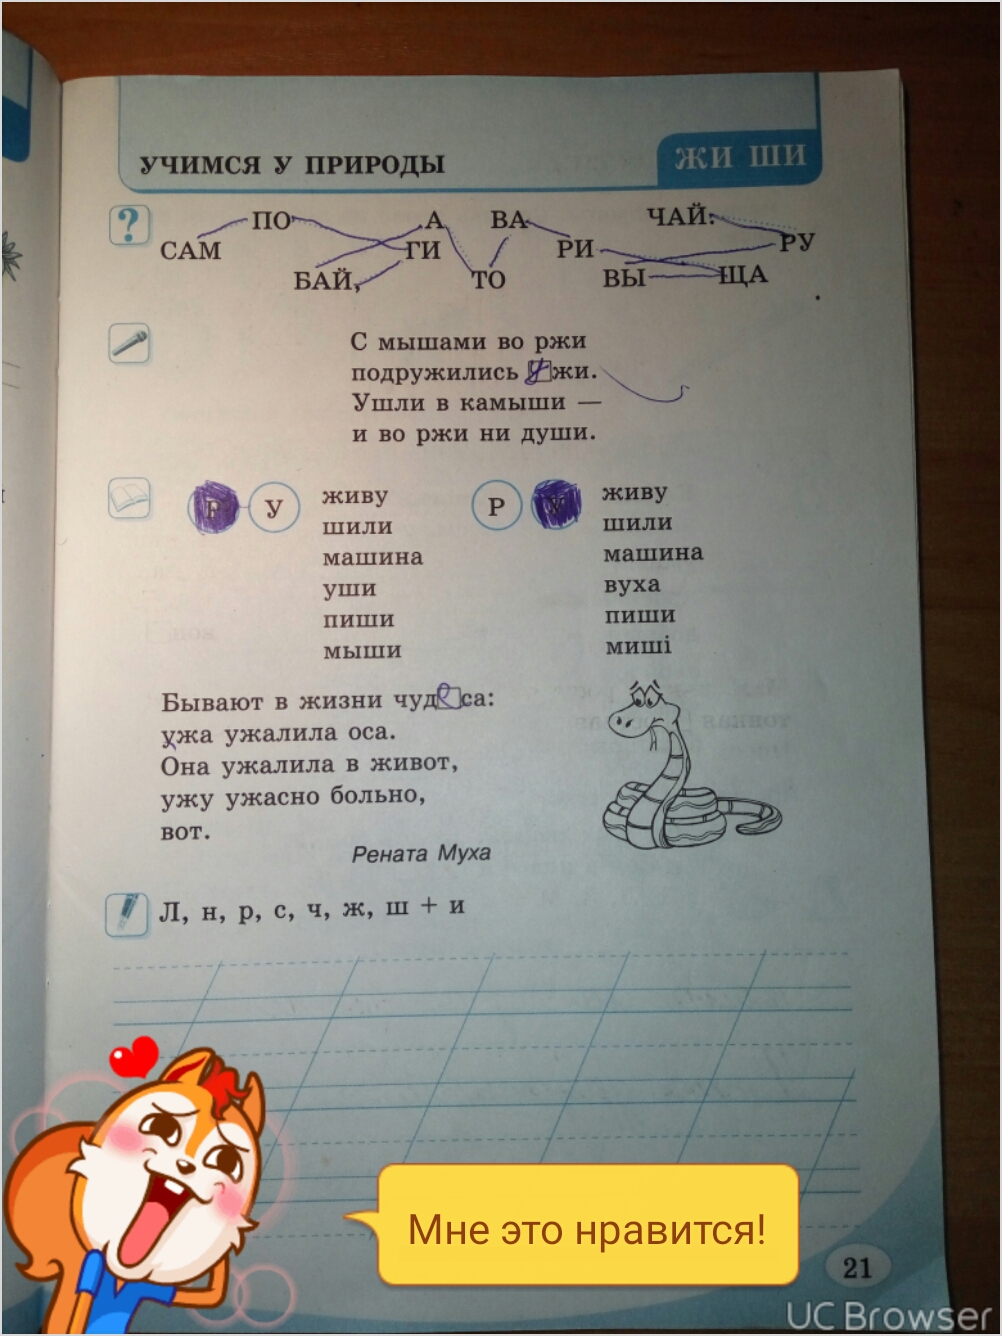 УЧИМСЯ У ПРИРОДЫ
ЖИ ШИ
?
ПО А ВА ЧАЙ:
САМ ГИ РИ РУ
БАЙ, ТО ВЫ ЩА
.
С мышами во ржи
подружились ужи.
Ушли в камыши —
и во ржи ни души.
Р У
живу
шили
машина
уши
пиши
мыши
Р У
живу
шили
машина
вуха
пиши
миші
Бывают в жизни чудеса:
ужа ужалила оса.
Она ужалила в живот,
ужу ужасно больно,
вот.
Рената Муха
Л, н, р, с, ч, ж, ш + и
Мне это нравится!
21
UC Browser